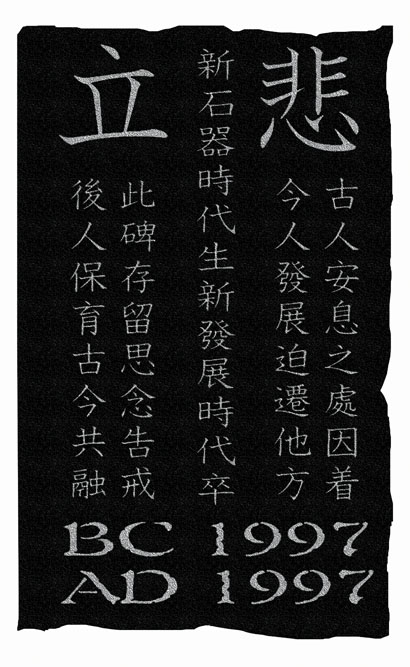 悲
古人安息之處因着
今人發展迫遷他方
新石器時代生新發展時代卒
立
此碑存留思念告戒
後人保育古今共融
BC 1997
AD 1997